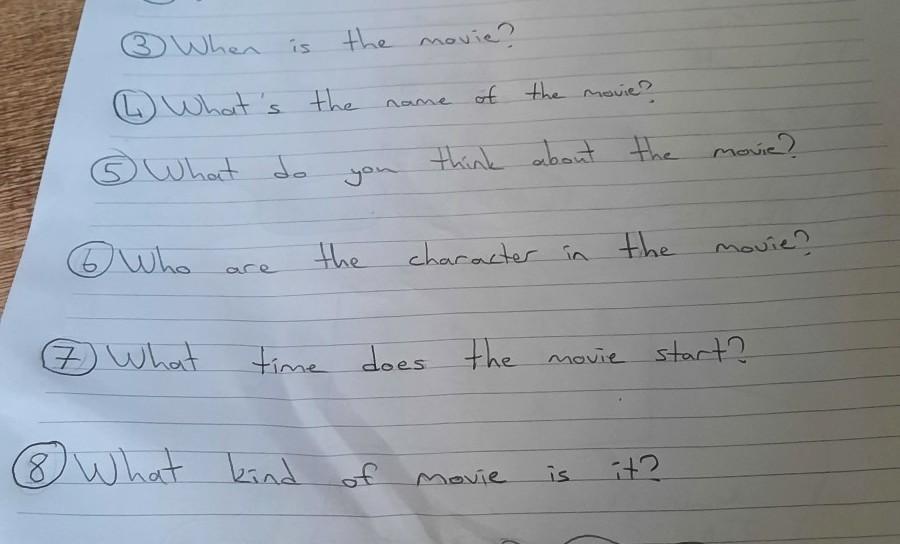 ③ When is the movie?
④ What's the name of the movie?
⑤ What do you think about the movie?
⑥ Who are the character in the movie?
⑦ What time does the movie start?
⑧ What kind of movie is it?